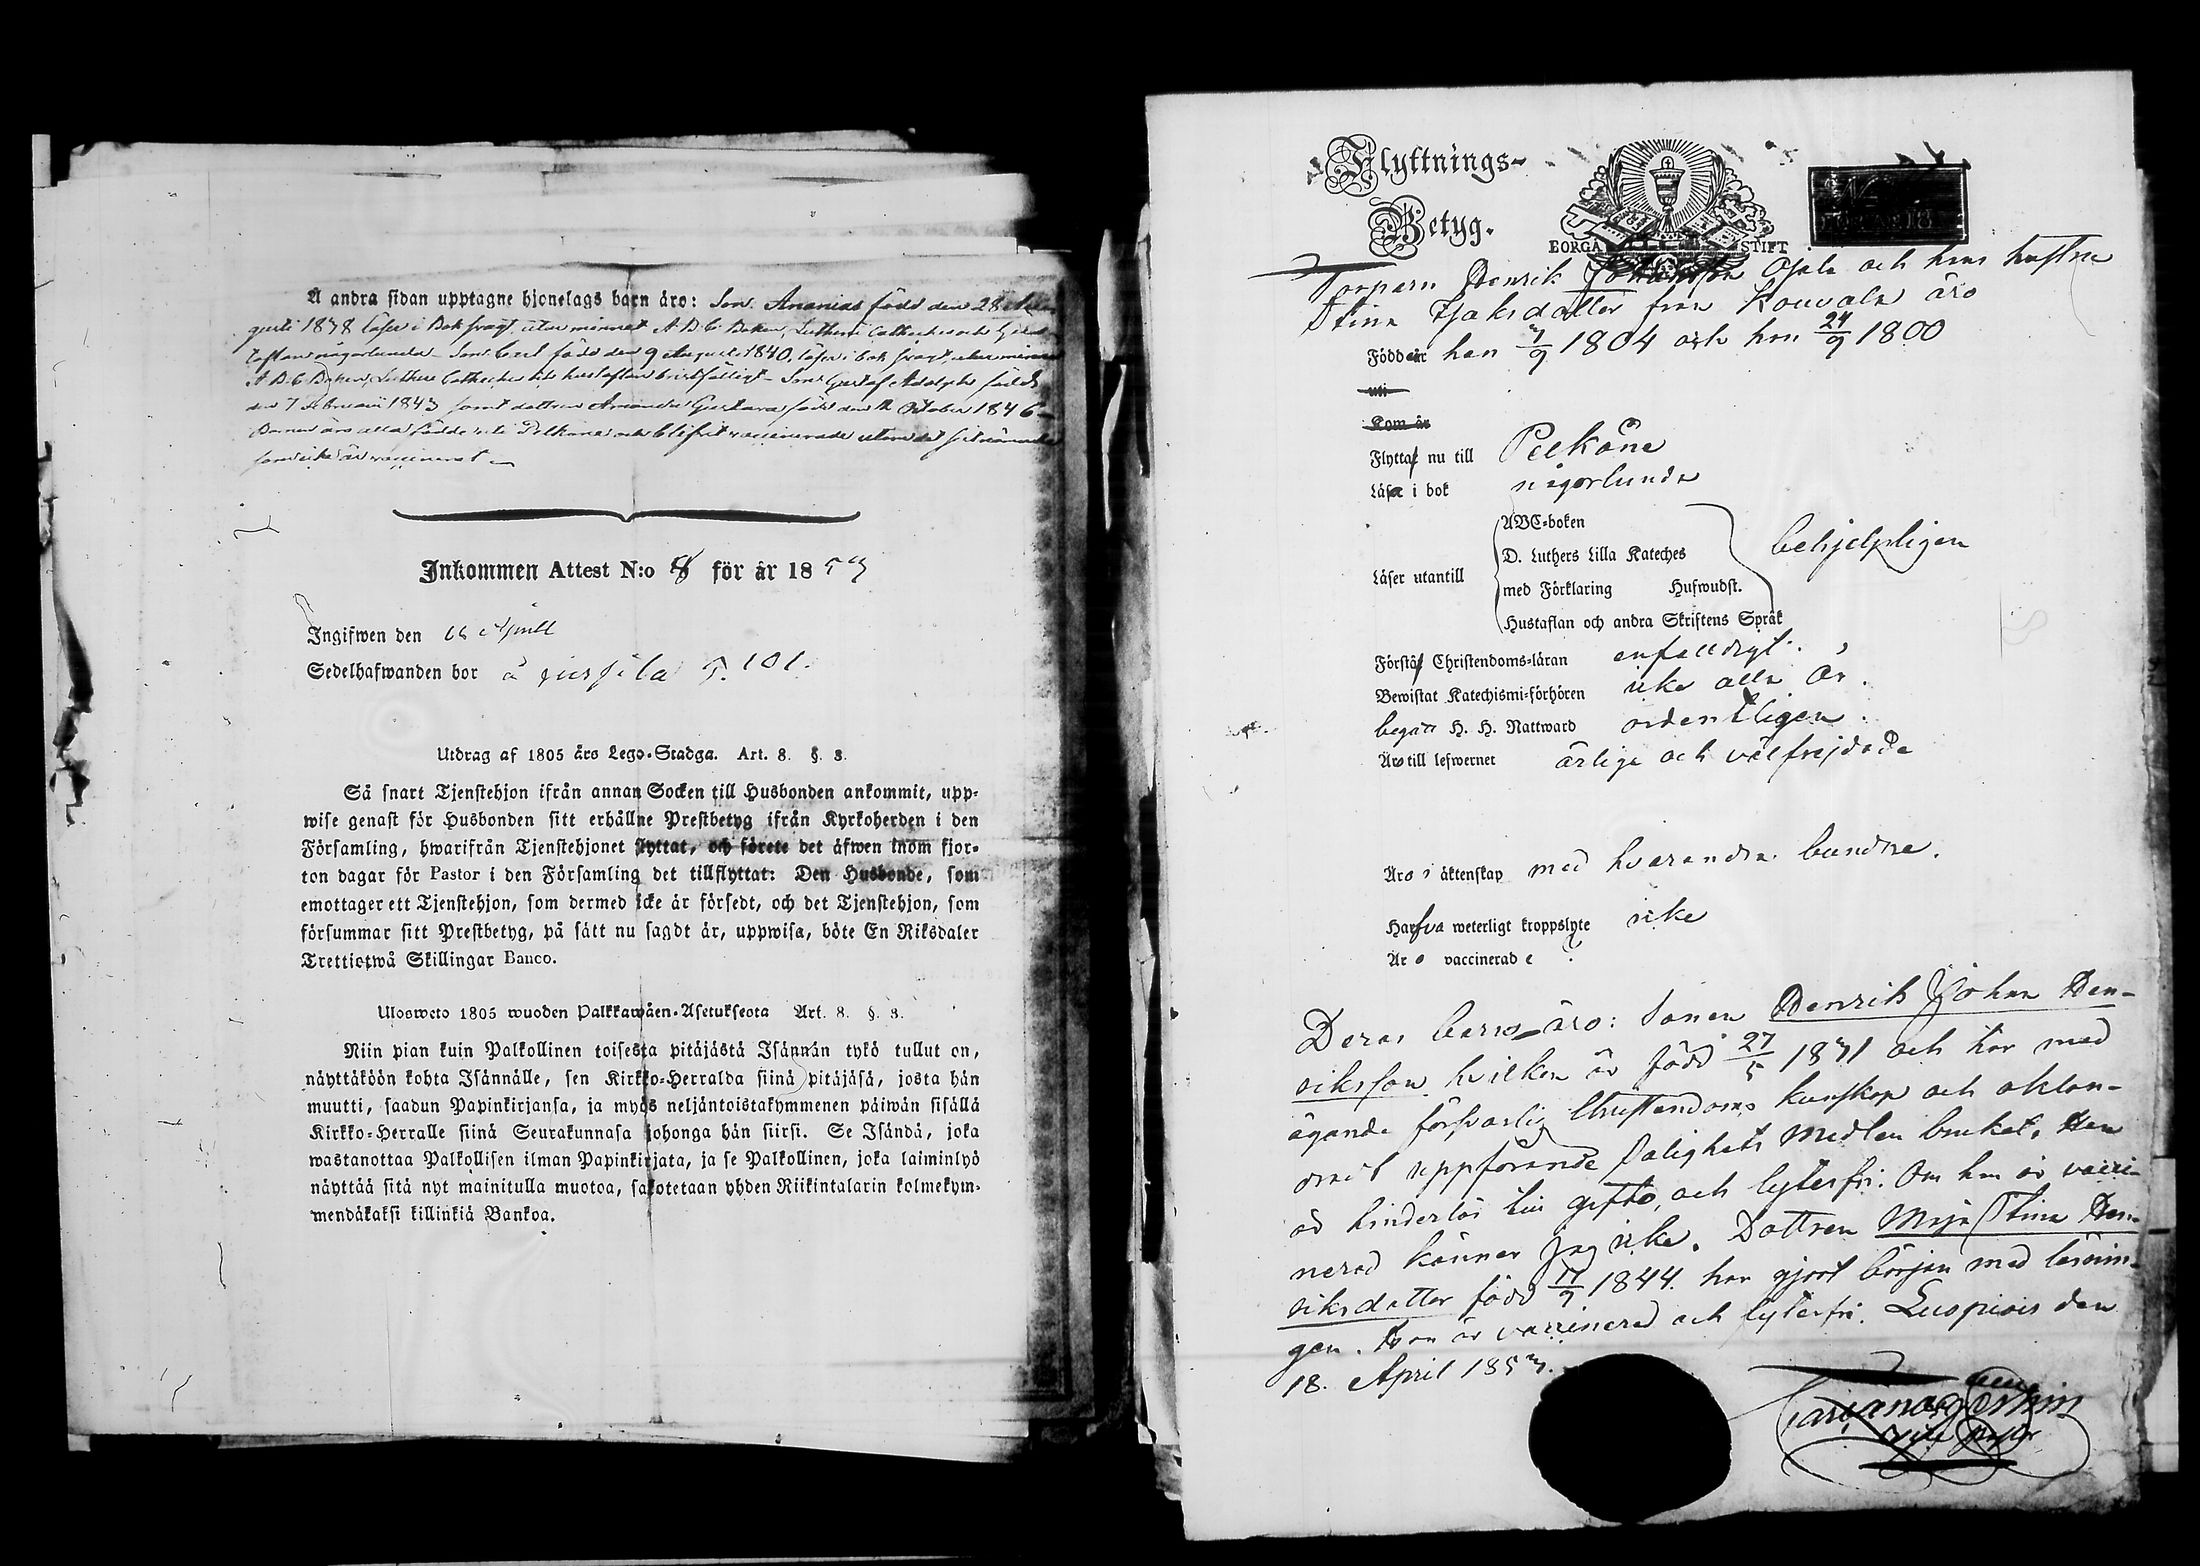 Å andra sidan upptagne hjonelags barn äro: Son. Ananias född den 28 Au-
gusti 1838 läser i Bok svagt, utan minnet A B C Boken, Luthers Catheches och
någorlunda – Son född den 9 Augusti 1840, läser i bok svagt, utan minnet
A B C Boken, Luthers Catheches och hustaflan bristfälligt – Son Gustaf Adolph född
den 7 Februarii 1843 samt dottren Amanda Gustava född den 12 October 1846 –
Barnen äro alla födde uti Pelkäne och blifvit vaccinerade utom det
som icke är vaccinerat –
Inkommen Attest N:o 8 för år 1853
Ingifwen den April
Sedelhafwanden bor å
Utdrag af 1805 års Lego-Stadga. Art. 8. §. 8.
Så snart Tjenstehjon ifrån annan Socken till Husbonden ankommit, upp-
wise genast för Husbonden sitt erhållne Prestbetyg ifrån Kyrkoherden i den
Församling, hwarifrån Tjenstehjonet flyttat, och förete det äfwen inom fjor-
ton dagar för Pastor i den Församling det tillflyttat: Den Husbonde, som
emottager ett Tjenstehjon, som dermed icke är försedt, och det Tjenstehjon, som
försummar sitt Prestbetyg, på sätt nu sagdt är, uppwisa, böte En Riksdaler
Trettiotwå Skillingar Banco.
Ulosweto 1805 wuoden Palkkawäen-Asetuksesta Art. 8. §. 8.
Niin pian kuin Palkollinen toisesta pitäjästä Isännän tykö tullut on,
näyttäköön kohta Isännälle, sen Kirkko-Herralda siinä pitäjäsä, josta hän
muutti, saadun Papinkirjansa, ja myös neljäntoistakymmenen päiwän sisällä
Kirkko-Herralle siinä Seurakunnasa johonga hän siirsi. Se Isändä, joka
wastanottaa Palkollisen ilman Papinkirjata, ja se Palkollinen, joka laiminlyö
näyttää sitä nyt mainitulla muotoa, sakotetaan yhden Riikintalarin kolmekym-
mendäkaksi killinkiä Bankoa.
Flyttnings-
Betyg.
BORGÅ STIFT
Torparn Henrik Johansson Ojala och hans hustru
Stina Isaksdotter från Kouvala äro
Född år han 7/9 1804 och hon 24/9 1800
uti
Kom år
Flytta nu till Pelkäne
Läsa i bok någorlunda
ABC-boken
D. Luthers Lilla Kateches
Läser utantill behjelpligen
med Förklaring Hufwudst.
Hustaflan och andra Skriftens Språk
Förstå Christendoms-läran enfaldigt.
Bewistat Katechismi-förhören icke alla år.
begått H. H. Nattward ordentligen.
Äro till lefwernet ärliga och välfrejdade
Äro i äktenskap med hvarandra bundna.
Hafva weterligt kroppslyte icke
Äro vaccinerade ?
Deras barn äro: Sonen Henrik Johan Hen-
riksson hvilken är född 27/5 1831 och har med
ägande försvarlig Christendoms kunskap och oklan-
dradt uppförande Salighets Medlen brukat. Han
är hinderlös till gifte, och lyterfri. Om han är vacci-
nerad känner jag icke. Dottren Maja Stina Hen-
riksdotter född 17/9 1844. har gjort början med läsnin-
gen. Hon är vaccinerad och lyterfri. Luopiois den
18. April 1853.